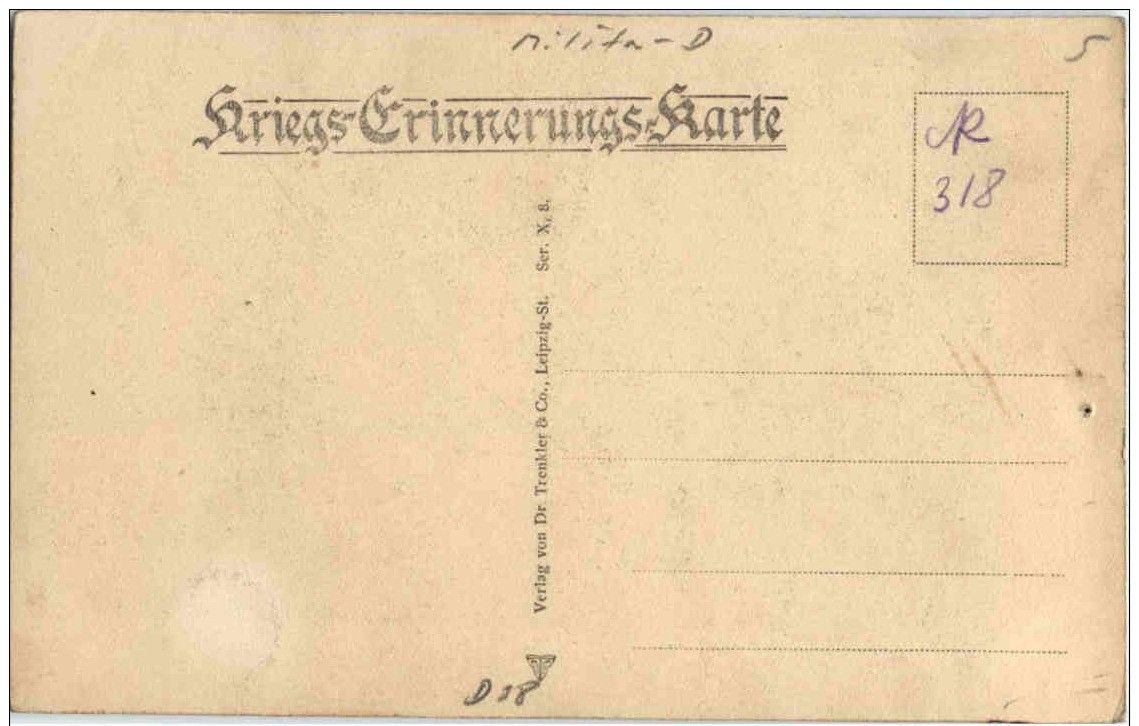 Militär-D
5
Kriegs-Erinnerungs-Karte
NR
318
Verlag von Dr. Trenkler & Co., Leipzig-St. Ser. X, 8.
D 18